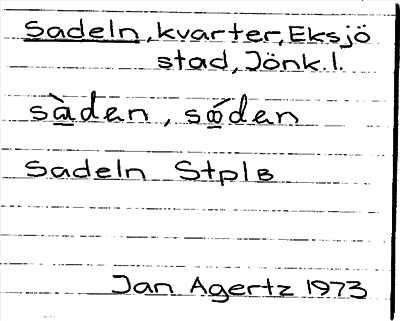 Sadeln, kvarter, Eksjö
stad, Jönk. l.
sàden, sǿden
Sadeln StplB
Jan Agertz 1973